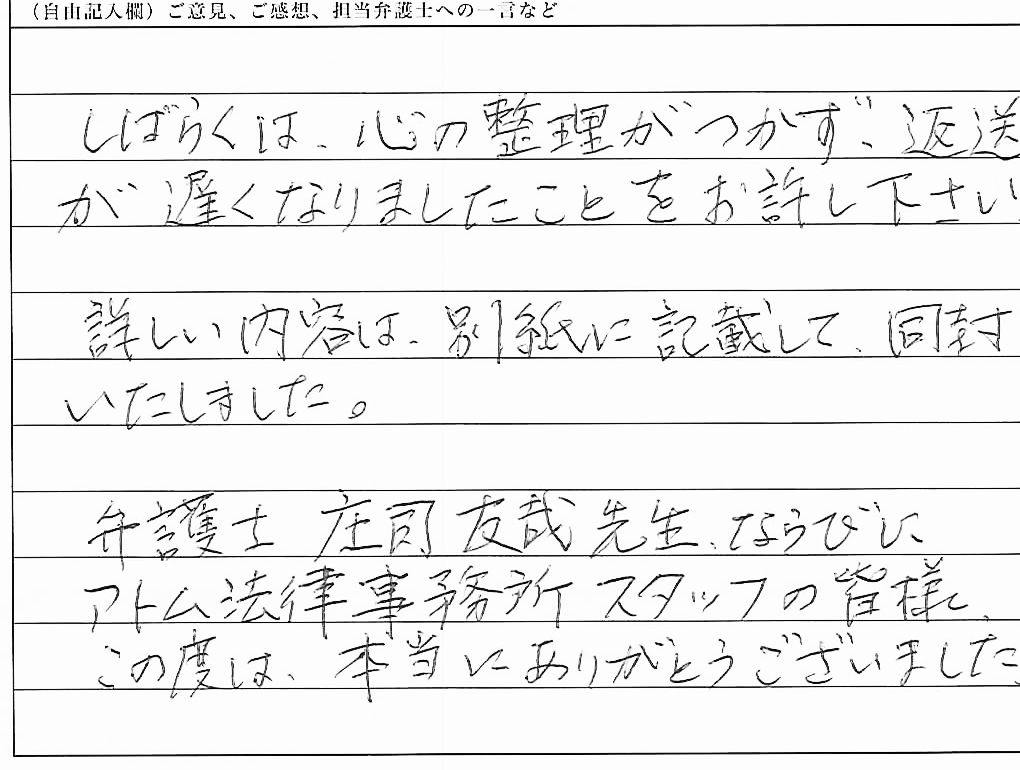 （自由記入欄）ご意見、ご感想、担当弁護士への一言など
しばらくは、心の整理がつかず、返送
が遅くなりましたことをお許し下さい
詳しい内容は、別紙に記載して、同封
いたしました。
弁護士 庄司 友哉 先生、ならびに
アトム法律事務所 スタッフの皆様、
この度は、本当にありがとうございました